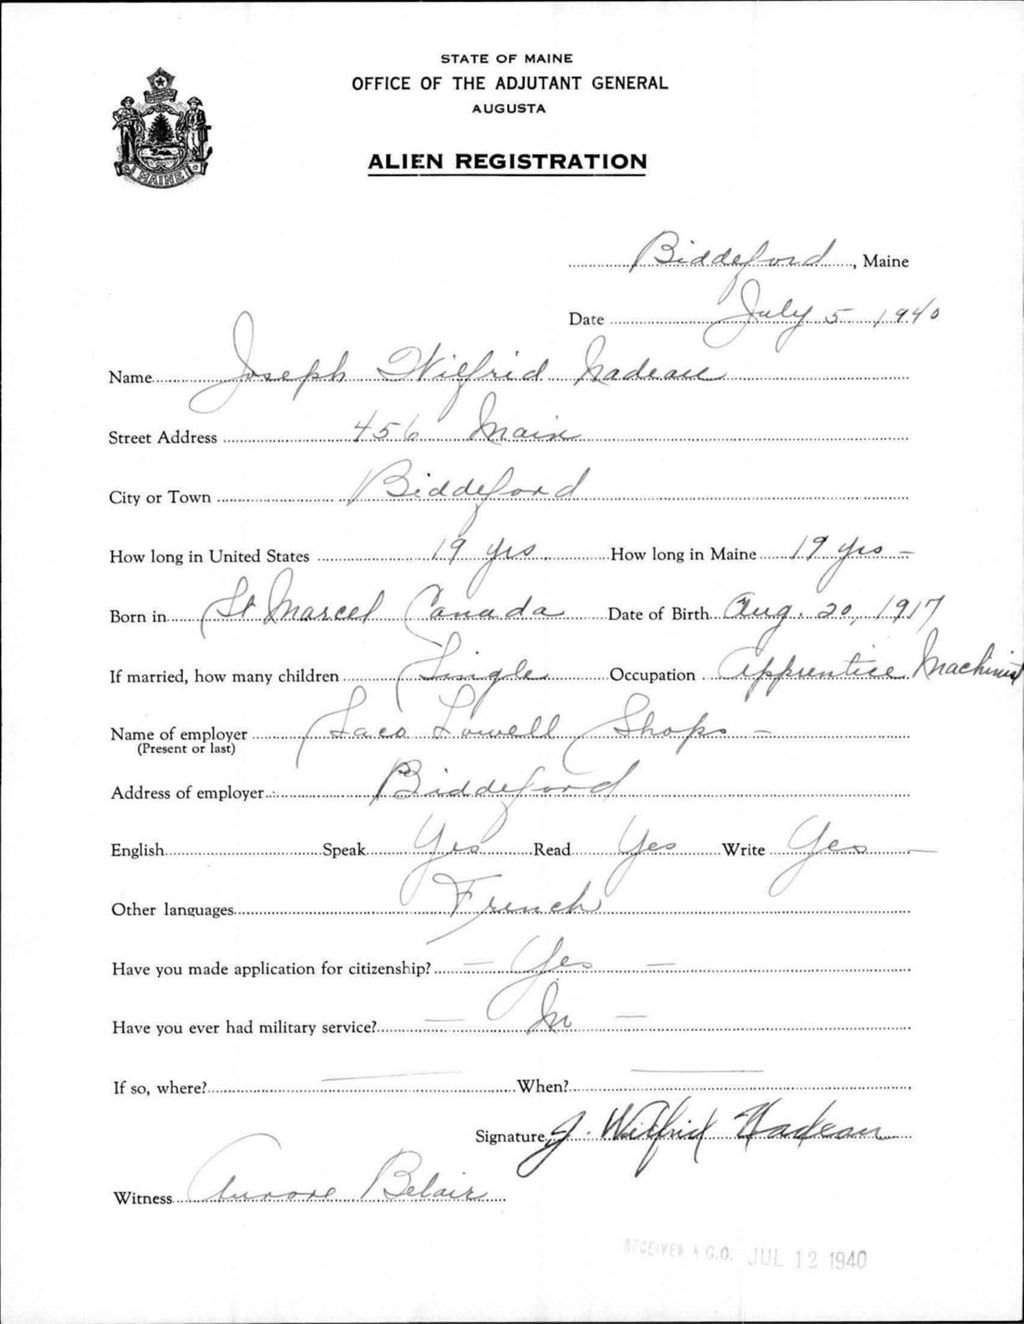 STATE OF MAINE
OFFICE OF THE ADJUTANT GENERAL
AUGUSTA
ALIEN REGISTRATION
MAINE
Biddeford, Maine
Date July 5, 1940
Name Joseph Wilfrid Nadeau
Street Address 456 Main
City or Town Biddeford
How long in United States 19 yrs. How long in Maine 19 yrs -
Born in St Marcel Canada Date of Birth Aug. 20, 1917
If married, how many children Single Occupation Apprentice Machinist
Name of employer Saco Lowell Shops -
(Present or last)
Address of employer Biddeford
English Speak Yes Read Yes Write Yes
Other languages French
Have you made application for citizenship? - Yes -
Have you ever had military service? - No -
If so, where? — When? —
Signature J. Wilfrid Nadeau
Witness Aurore Belair
RECEIVED A.G.O. JUL 12 1940